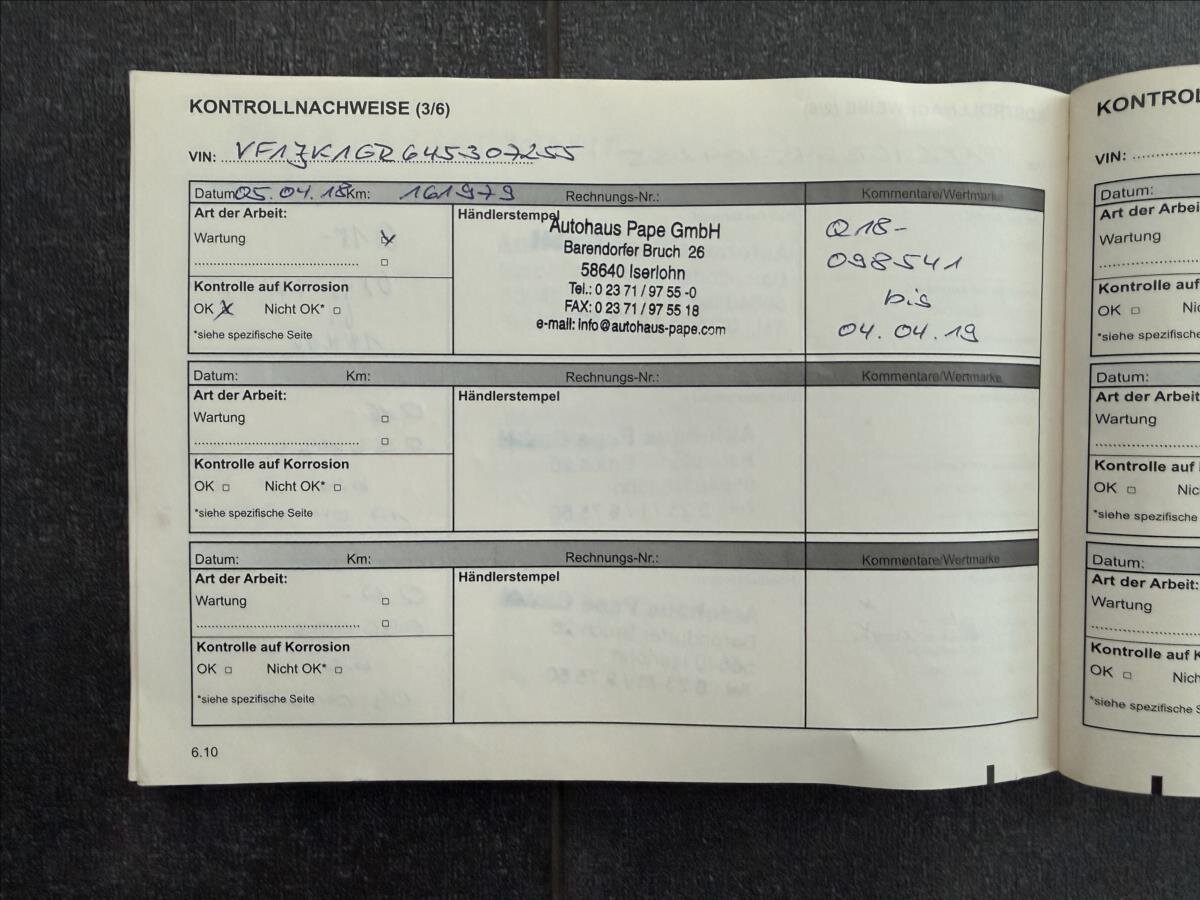 KONTROLLNACHWEISE (3/6)
VIN: VF1JK1GR645307255
Datum: 05.04.18 Km: 161979 Rechnungs-Nr.: Kommentare/Wertmarke
Art der Arbeit:
Wartung
Kontrolle auf Korrosion
OK Nicht OK*
*siehe spezifische Seite
Händlerstempel
Autohaus Pape GmbH
Barendorfer Bruch 26
58640 Iserlohn
Tel.: 0 23 71 / 97 55 -0
FAX: 0 23 71 / 97 55 18
e-mail: info@autohaus-pape.com
Q18-
098541
bis
04.04.19
Datum: Km: Rechnungs-Nr.: Kommentare/Wertmarke
Art der Arbeit:
Wartung
Kontrolle auf Korrosion
OK Nicht OK*
*siehe spezifische Seite
Händlerstempel
Datum: Km: Rechnungs-Nr.: Kommentare/Wertmarke
Art der Arbeit:
Wartung
Kontrolle auf Korrosion
OK Nicht OK*
*siehe spezifische Seite
Händlerstempel
6.10
KONTROL
VIN:
Datum:
Art der Arbeit
Wartung
Kontrolle auf
OK Nic
*siehe spezifische
Datum:
Art der Arbeit
Wartung
Kontrolle auf
OK Nic
*siehe spezifische
Datum:
Art der Arbeit:
Wartung
Kontrolle auf K
OK Nich
*siehe spezifische S